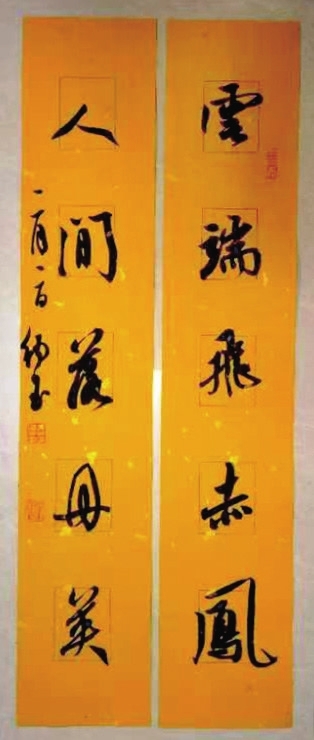 雲端飛赤鳳
人間落丹英
一月一日